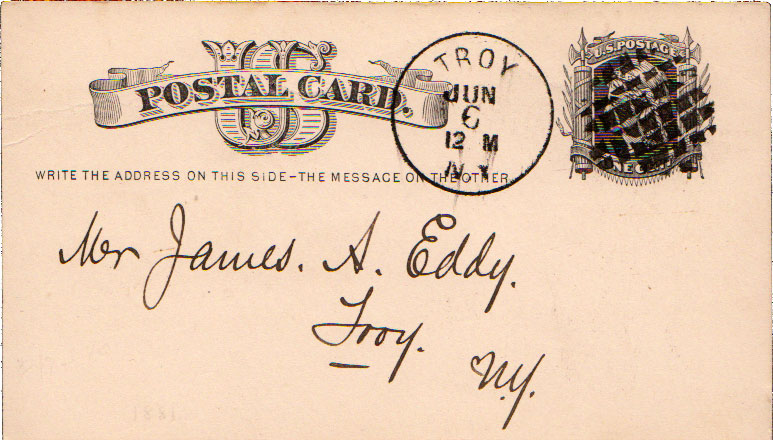 U.S. POSTAGE
US
POSTAL CARD.
TROY
JUN
6
12 M
N.Y.
WRITE THE ADDRESS ON THIS SIDE-THE MESSAGE ON THE OTHER
Mr James. A. Eddy.
Troy.
N.Y.